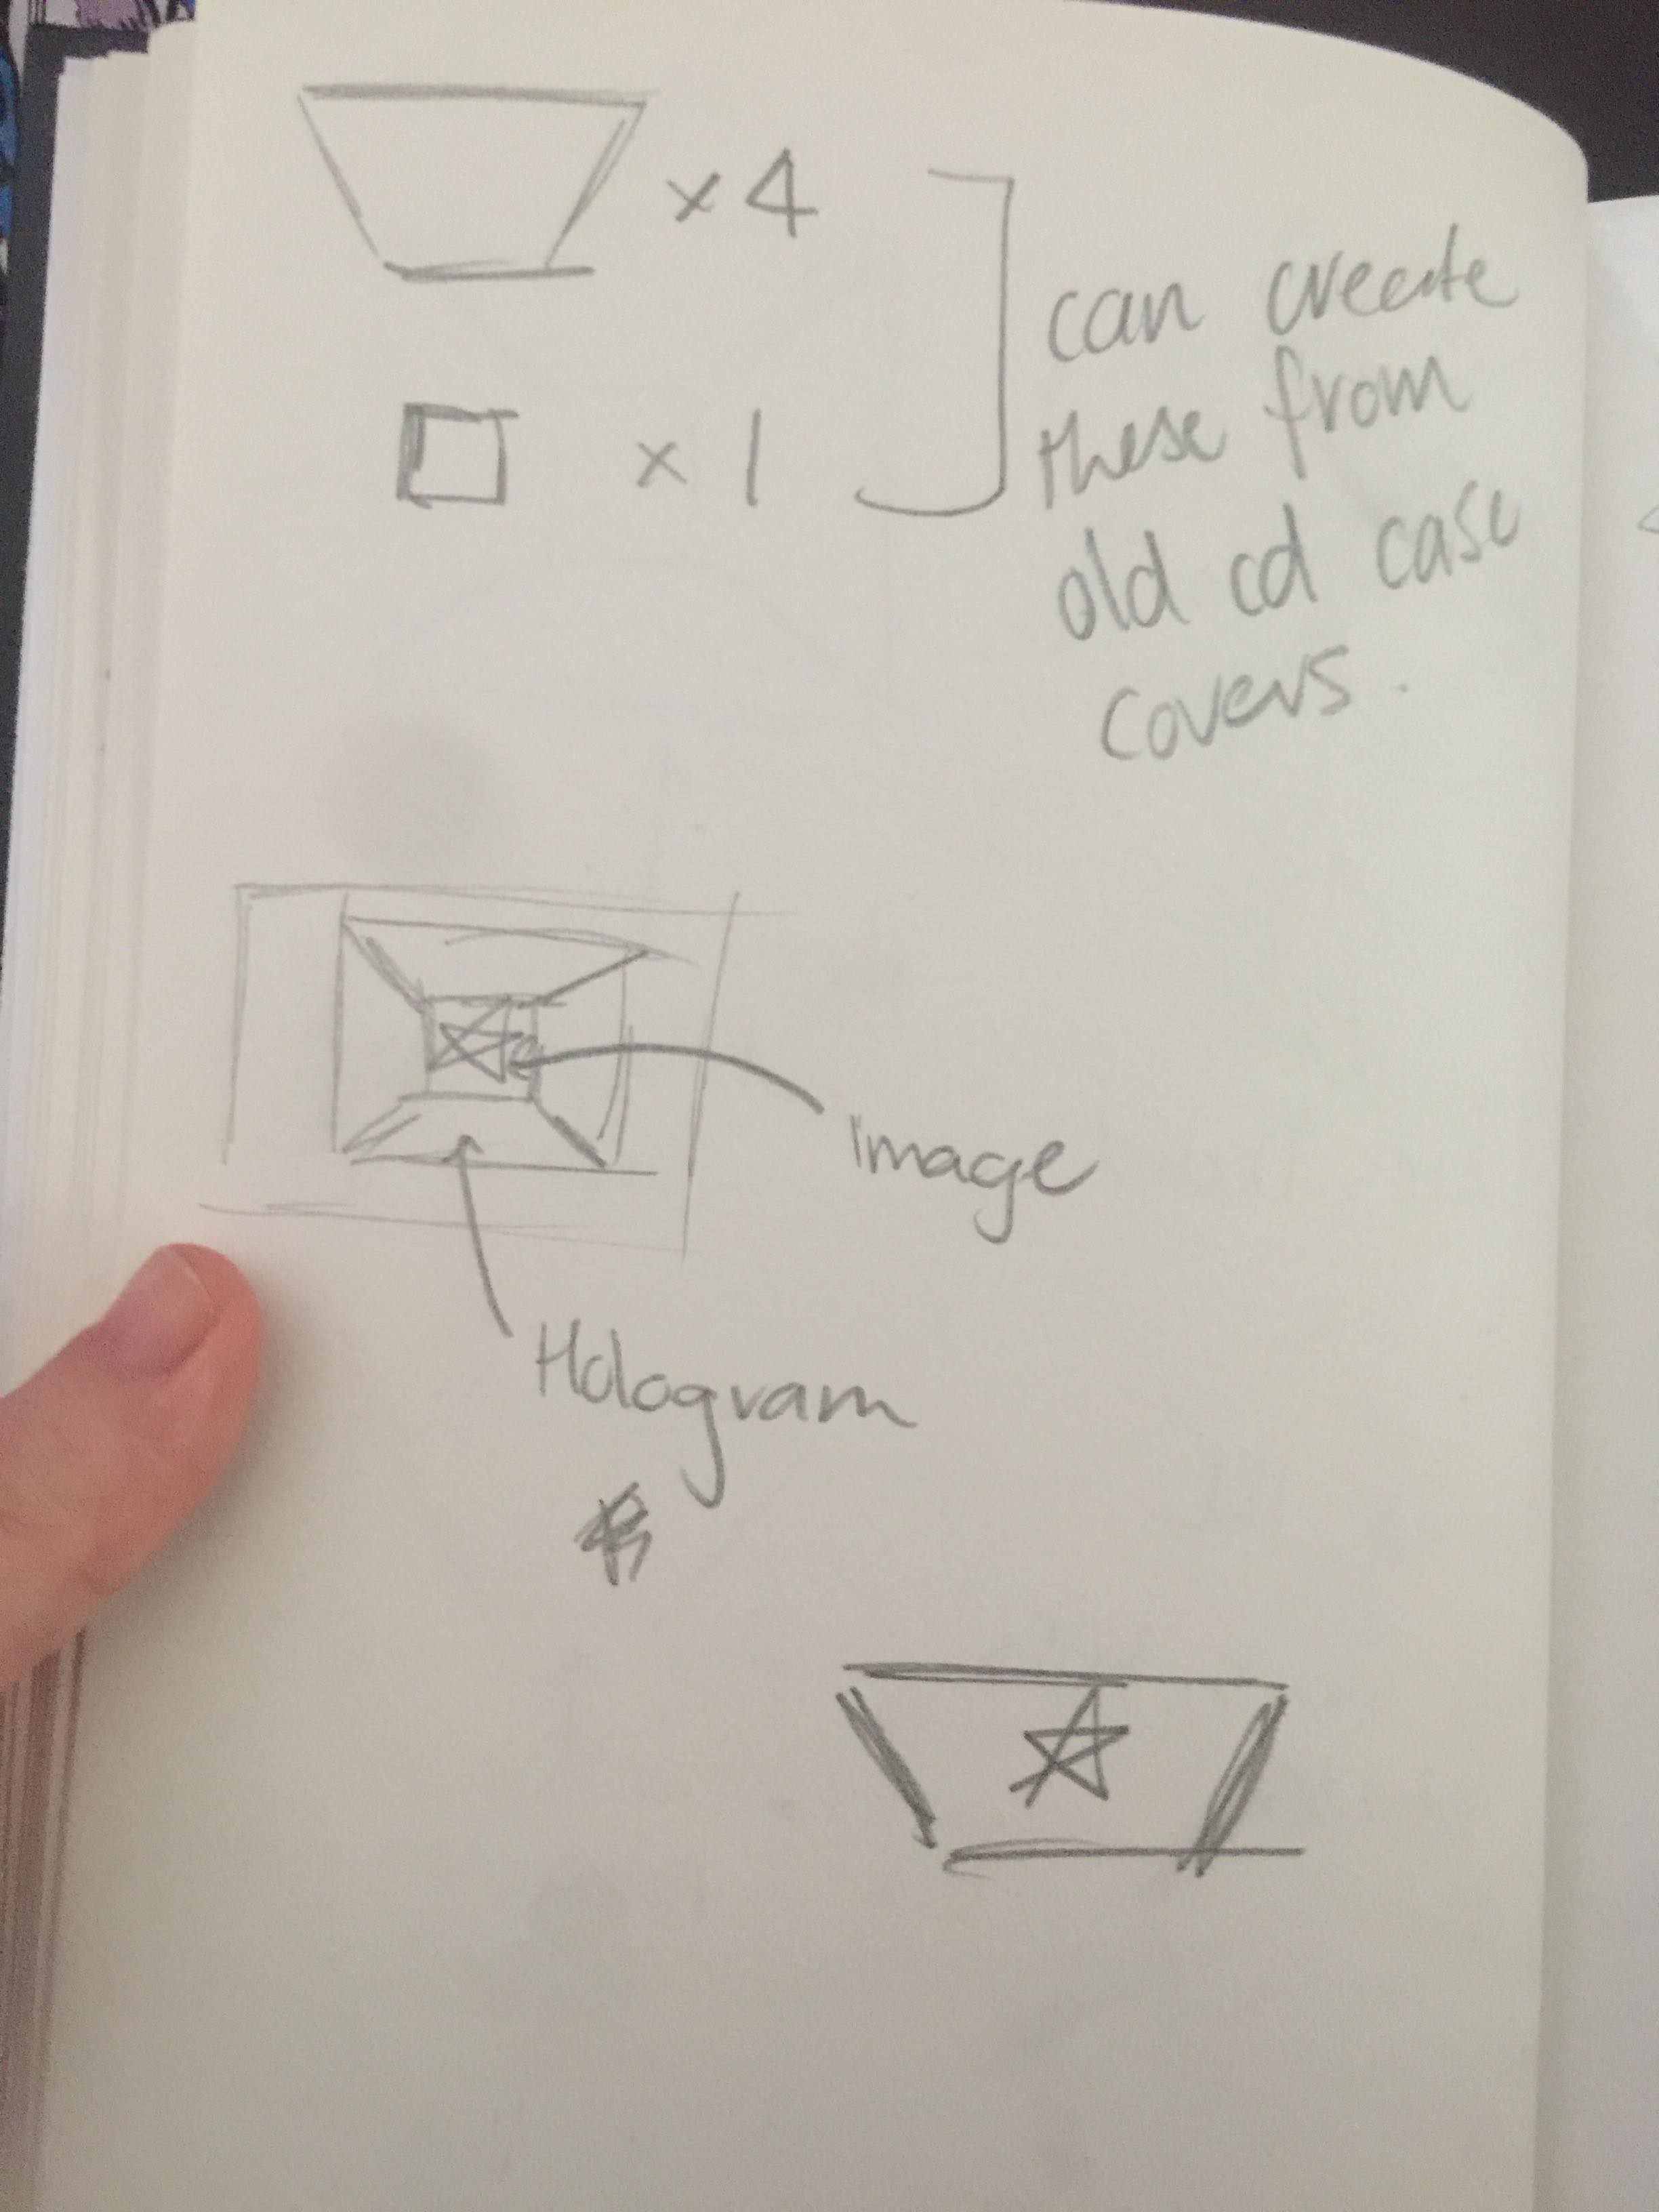 x 4
x 1
can create
these from
old cd case
covers.
image
Hologram